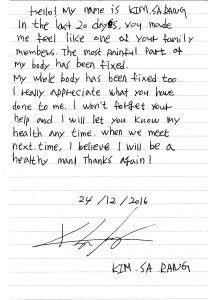 Hello! My name is KIM.SARANG
In the last 20 days, you made
me feel like one of your family
members. The most painful part of
my body has been fixed.
My whole body has been fixed too.
I really appreciate what you have
done to me. I won't forget your
help and I will let you know my
health any time. when we meet
next time, I believe I will be a
healthy man! Thanks again!
24/12/2016
KIM.SA.RANG